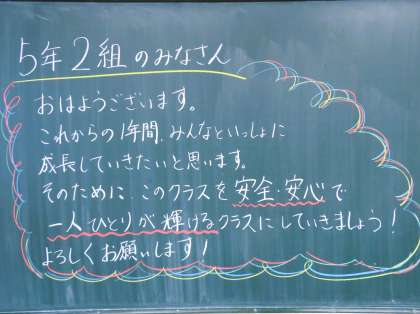 5年2組のみなさん
おはようございます。
これからの1年間、みんなといっしょに
成長していきたいと思います。
そのために、このクラスを安全・安心で
一人ひとりが輝けるクラスにしていきましょう!
よろしくお願いします!